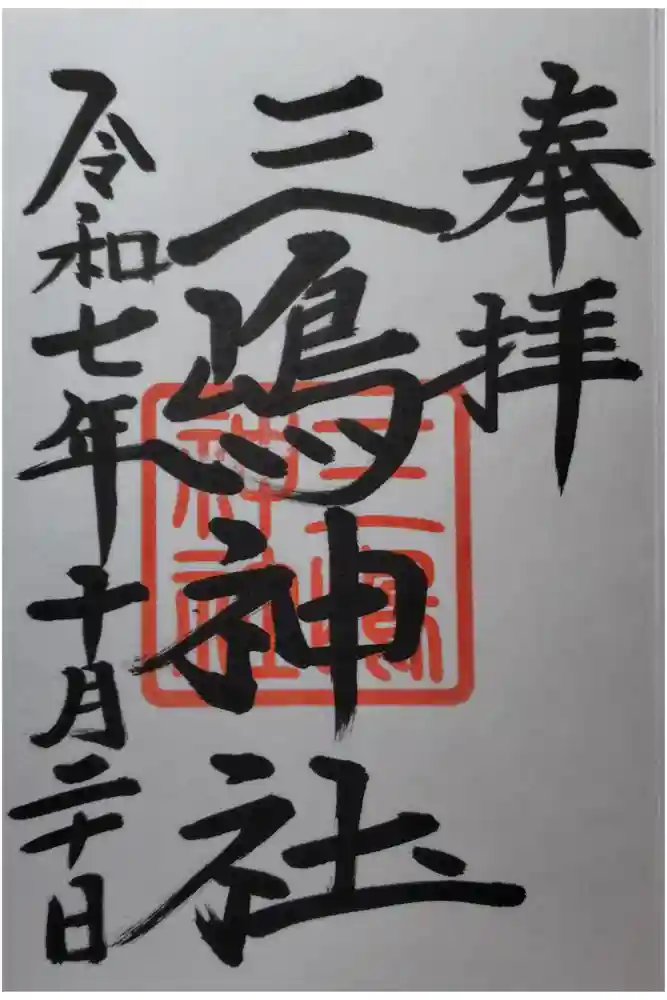 奉拝
三嶋神社
三嶋神社
令和七年十月二十日